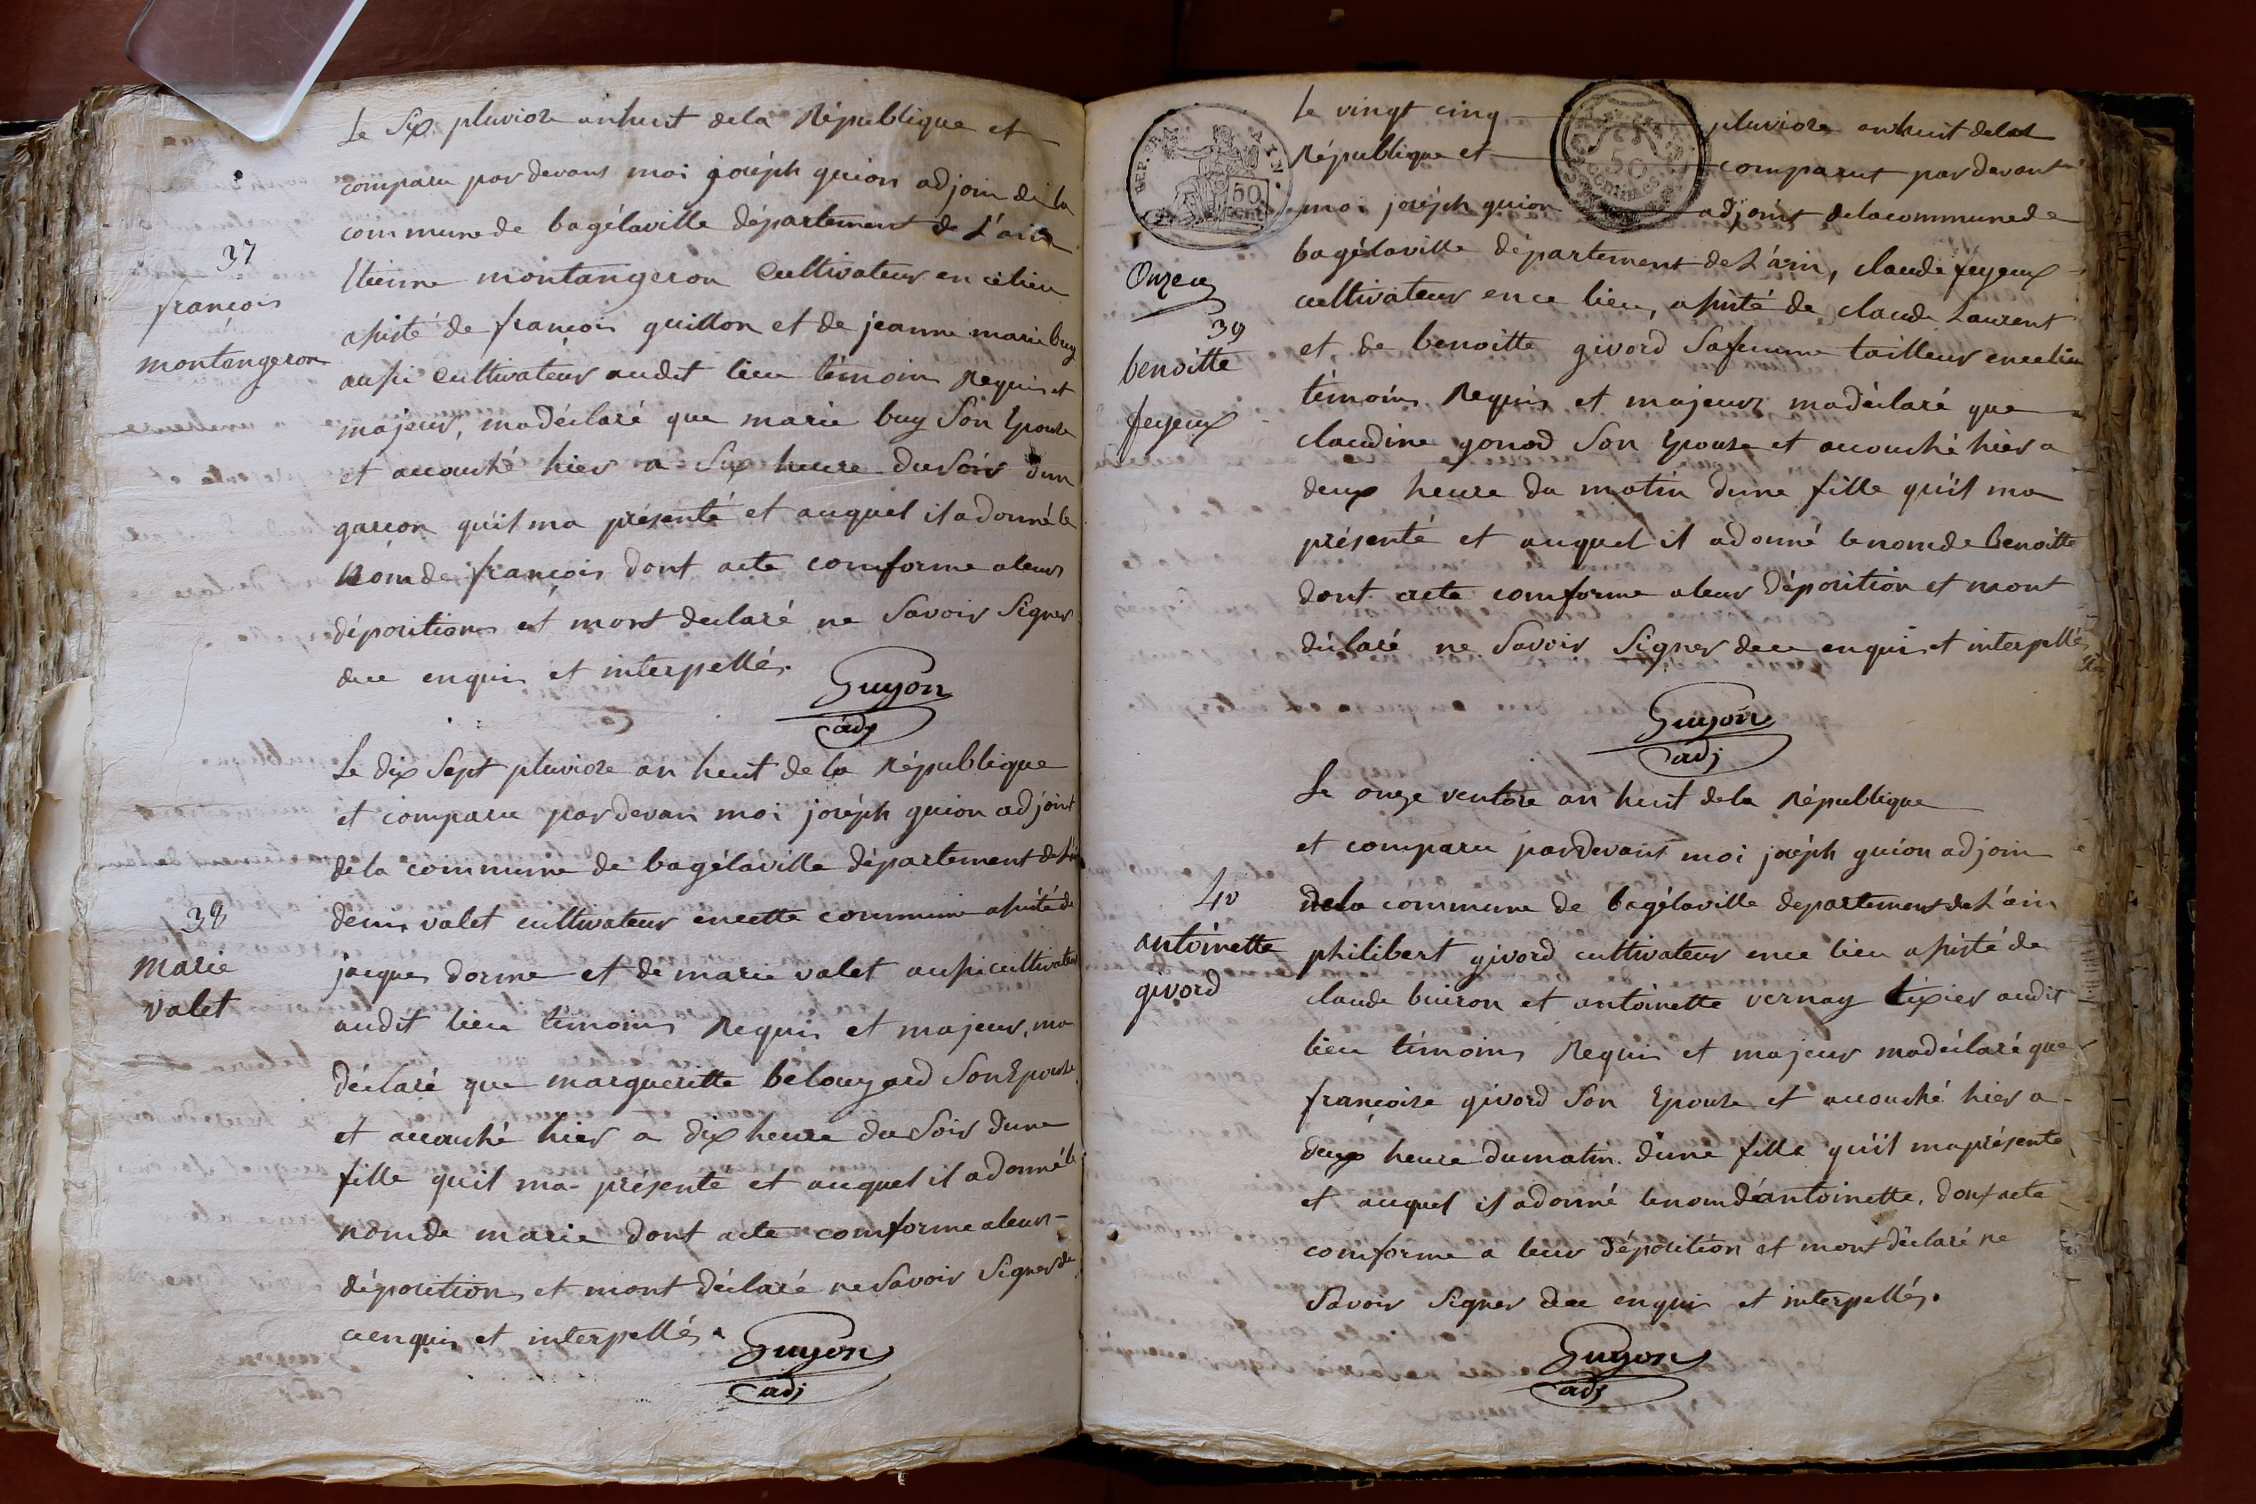 Le Six pluviose an huit de la République et
comparu par devans moi joséph guion adjoin de la
commune de bagélaville département de L'ain
Etienne montangeron Cultivateur en ce lieu
assisté de françois guillon et de jeanne marie buy
aussi cultivateur audit lieu témoins Requis et
majeur, ma déclaré que marie buy Son Epouse
et accouché hier a Six heure du Soir dun
garcon quil ma présenté et auquel il a donné le
nom de françois dont acte comforme a leurs
dépositions et mont declaré ne Savoir Signer
de ce enquis et interpellés.
Guyon
adj
37
françois
montangeron
Le dix Sept pluviose an huit de la République
et comparu par devan moi joséph guion adjoint
de la commune de bagélaville département de L'ain
denis valet cultivateur en cette commune assisté de
jacque dorme et de marie valet aussi cultivateur
audit lieu témoins Requis et majeur, ma
déclaré que margueritte belouzard Son Epouse
et accouché hier a dix heure du Soir dune
fille quil ma présenté et auquel il a donné le
nom de marie dont acte comforme a leurs
dépositions et mont déclaré ne Savoir Signer de
ce enquis et interpellés.
Guyon
adj
38
marie
valet
Le vingt cinq pluviose an huit de la
République et comparut par devant
moi joséph guion adjoint de la commune de
bagélaville département de L'ain, claude feyeux
cultivateur en ce lieu, assisté de claude Laurent
et de benoitte givord Sa femme tailleur en ce lieu
témoins Requis et majeur ma déclaré que
claudine gonod Son Epouse et accouché hier a
deux heure du matin dune fille quil ma
présenté et auquel il a donné le nom de Benoitte
dont acte comforme a leur déposition et mont
déclaré ne Savoir Signer de ce enquis et interpellés
Guyon
adj
REP. FRA
50
cent
50
centimes
Onzeu
39
benoitte
feyeux
Le onze ventose an huit de la République
et comparu par devant moi joséph guion adjoin
de la commune de bagélaville departement de L'ain
philibert givord cultivateur en ce lieu assisté de
claude buiron et antoinette vernay tixier audit
lieu témoins Requis et majeur ma déclaré que
françoise givord Son Epouse et accouché hier a
deux heure du matin dune fille quil ma présenté
et auquel il a donné le nom dantoinette. dont acte
comforme a leur déposition et mont déclaré ne
Savoir Signer de ce enquis et interpellés.
Guyon
adj
40
antoinette
givord